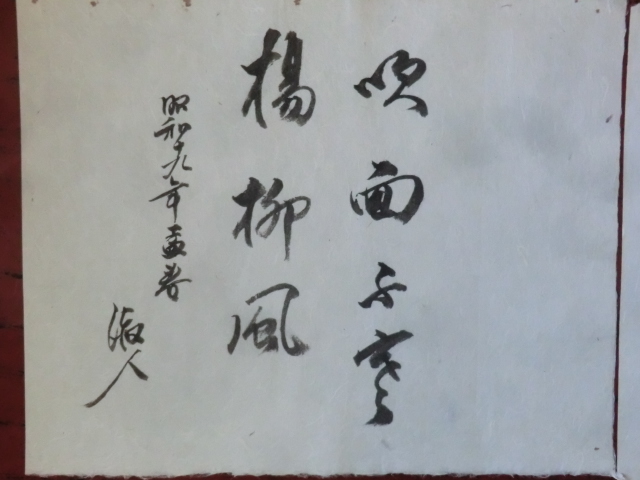 吹面不寒
楊柳風
昭和十九年孟春
淑人